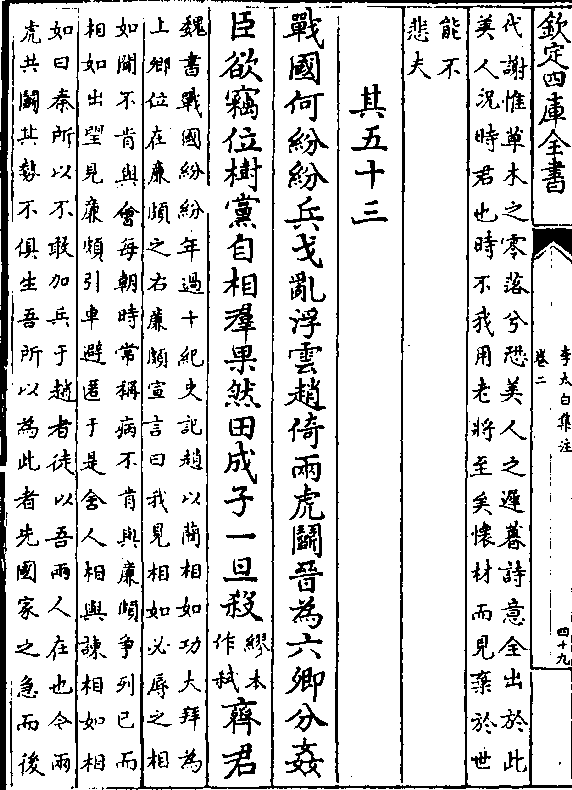 欽定四庫全書
李太白集注
卷二
四十九
代謝惟草木之零落兮恐美人之遲暮詩意全出於此
美人況時君也時不我用老將至矣懷材而見棄於世
能不
悲夫
其五十三
戰國何紛紛兵戈亂浮雲趙倚兩虎鬭晉為六卿分姦
臣欲竊位樹黨自相羣果然田成子一旦殺繆本作弒齊君
魏書戰國紛紛年過十紀史記趙以藺相如功大拜為
上卿位在廉頗之右廉頗宣言曰我見相如必辱之相
如聞不肯與會每朝時常稱病不肯與廉頗爭列已而
相如出望見廉頗引車避匿于是舍人相與諫相如相
如曰秦所以不敢加兵于趙者徒以吾兩人在也今兩
虎共鬭其勢不俱生吾所以為此者先國家之急而後